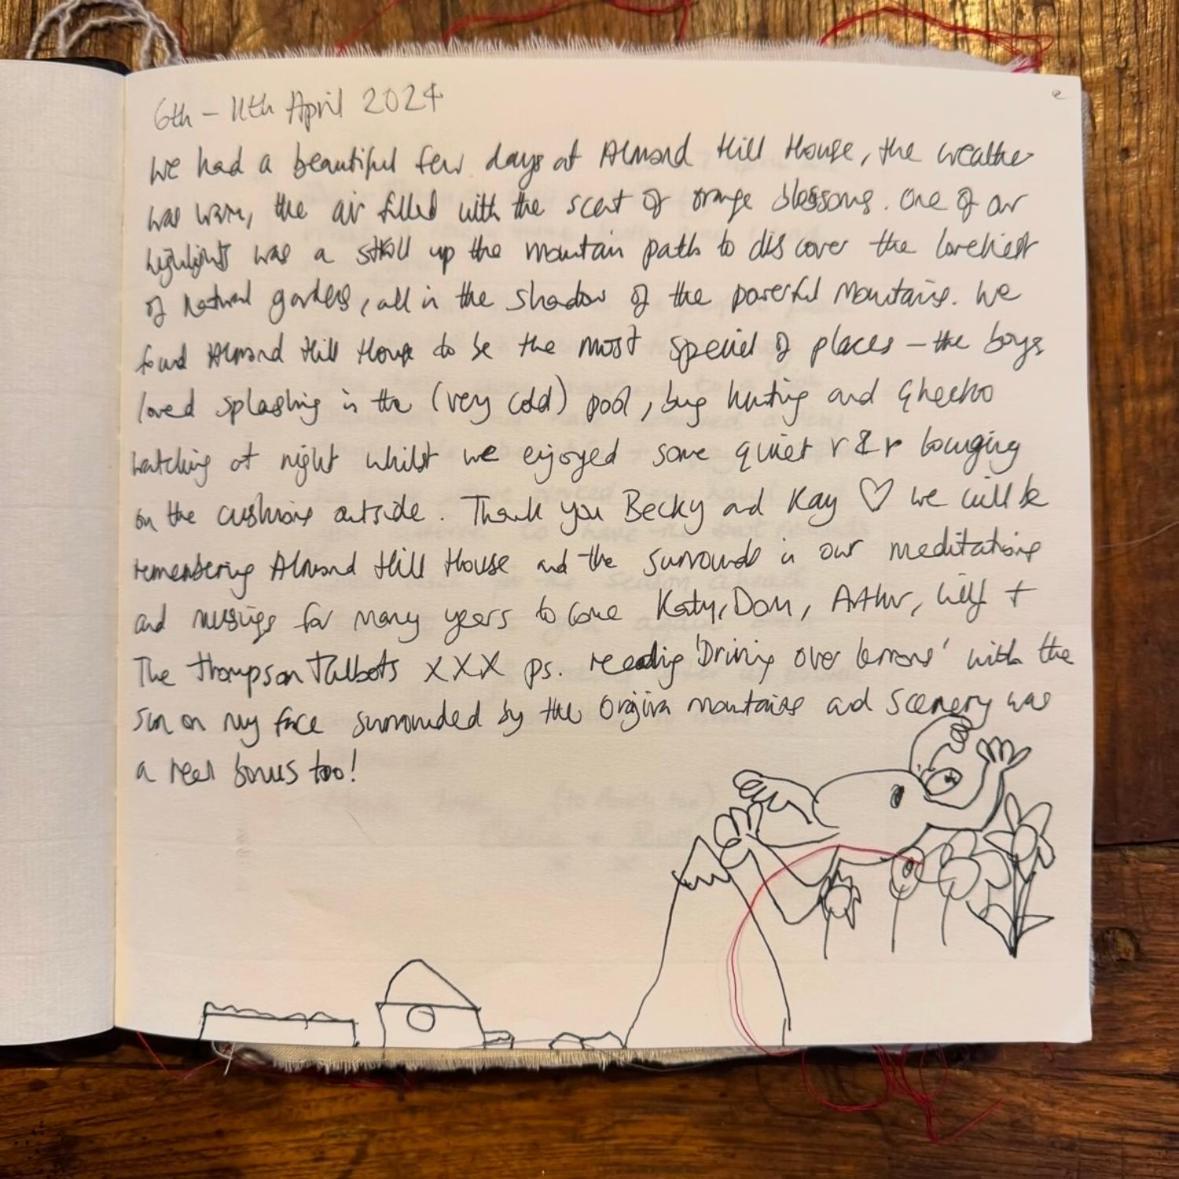 6th - 11th April 2024
We had a beautiful few days at Almond Hill House, the weather
was warm, the air filled with the scent of orange blossoms. One of our
highlights was a stroll up the mountain path to discover the loveliest
of natural gardens, all in the shadow of the powerful mountains. We
found Almond Hill House to be the most special of places - the boys
loved splashing in the (very cold) pool, bug hunting and Ghecko
watching at night whilst we enjoyed some quiet r & r lounging
on the cushions outside. Thank you Becky and Kay ♡ we will be
remembering Almond Hill House and the surrounds in our meditations
and musings for many years to come Katy, Dom, Arthur, Wilf +
The Thompson Talbots XXX ps. reading 'Driving over lemons' with the
sun on my face surrounded by the Orgiva mountains and scenery was
a real bonus too!